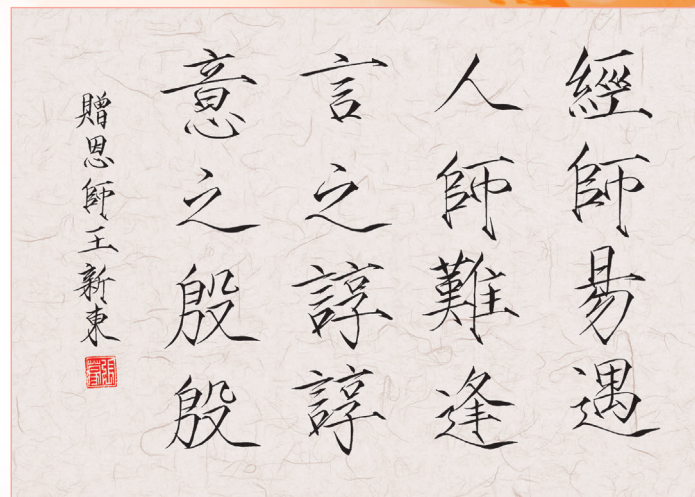 經師易遇
人師難逢
言之諄諄
意之殷殷
贈恩師王新東